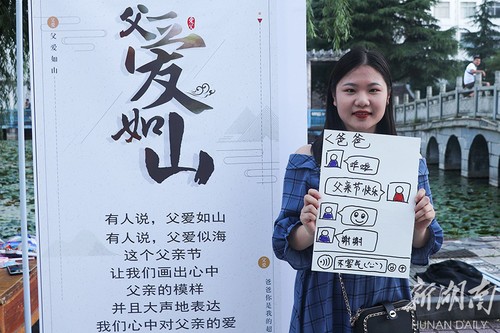 父爱如山
父爱如山
有人说，父爱如山
有人说，父爱似海
这个父亲节
让我们画出心中
父亲的模样
并且大声地表达
我们心中对父亲的爱
爸爸你是我的超
<爸爸
父亲节快乐
谢谢
不客气
新湖南
HUNAN DAILY